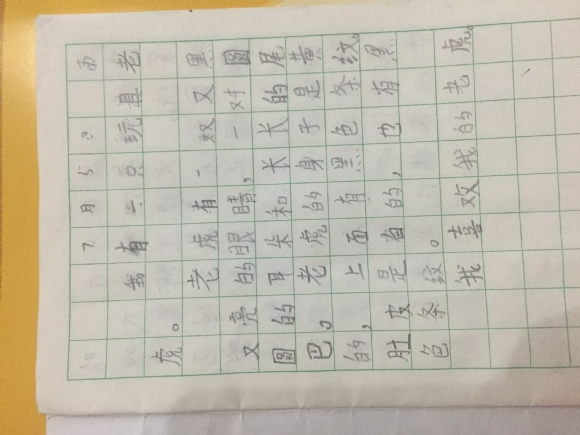 7月5日 雨
我有一只玩具老
虎。
老虎有一双又黑
又亮的眼睛,一对圆
圆的耳朵和长长的尾
巴。老虎的身子是黄
的,上面有黑色条纹。
肚皮是白的,也有黑
色条纹。
我喜欢我的老虎。